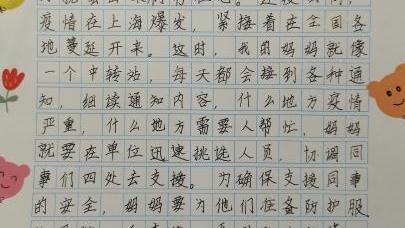 疫情在上海爆发，紧接着在全国各
地蔓延开来。这时，我的妈妈就像
一个中转站，每天都会接到各种通
知，细读通知内容，什么地方疫情
严重，什么地方需要人帮忙，妈妈
就要在单位迅速挑选人员，协调同
事们四处去支援。为确保支援同事
的安全，妈妈要为他们准备防护服